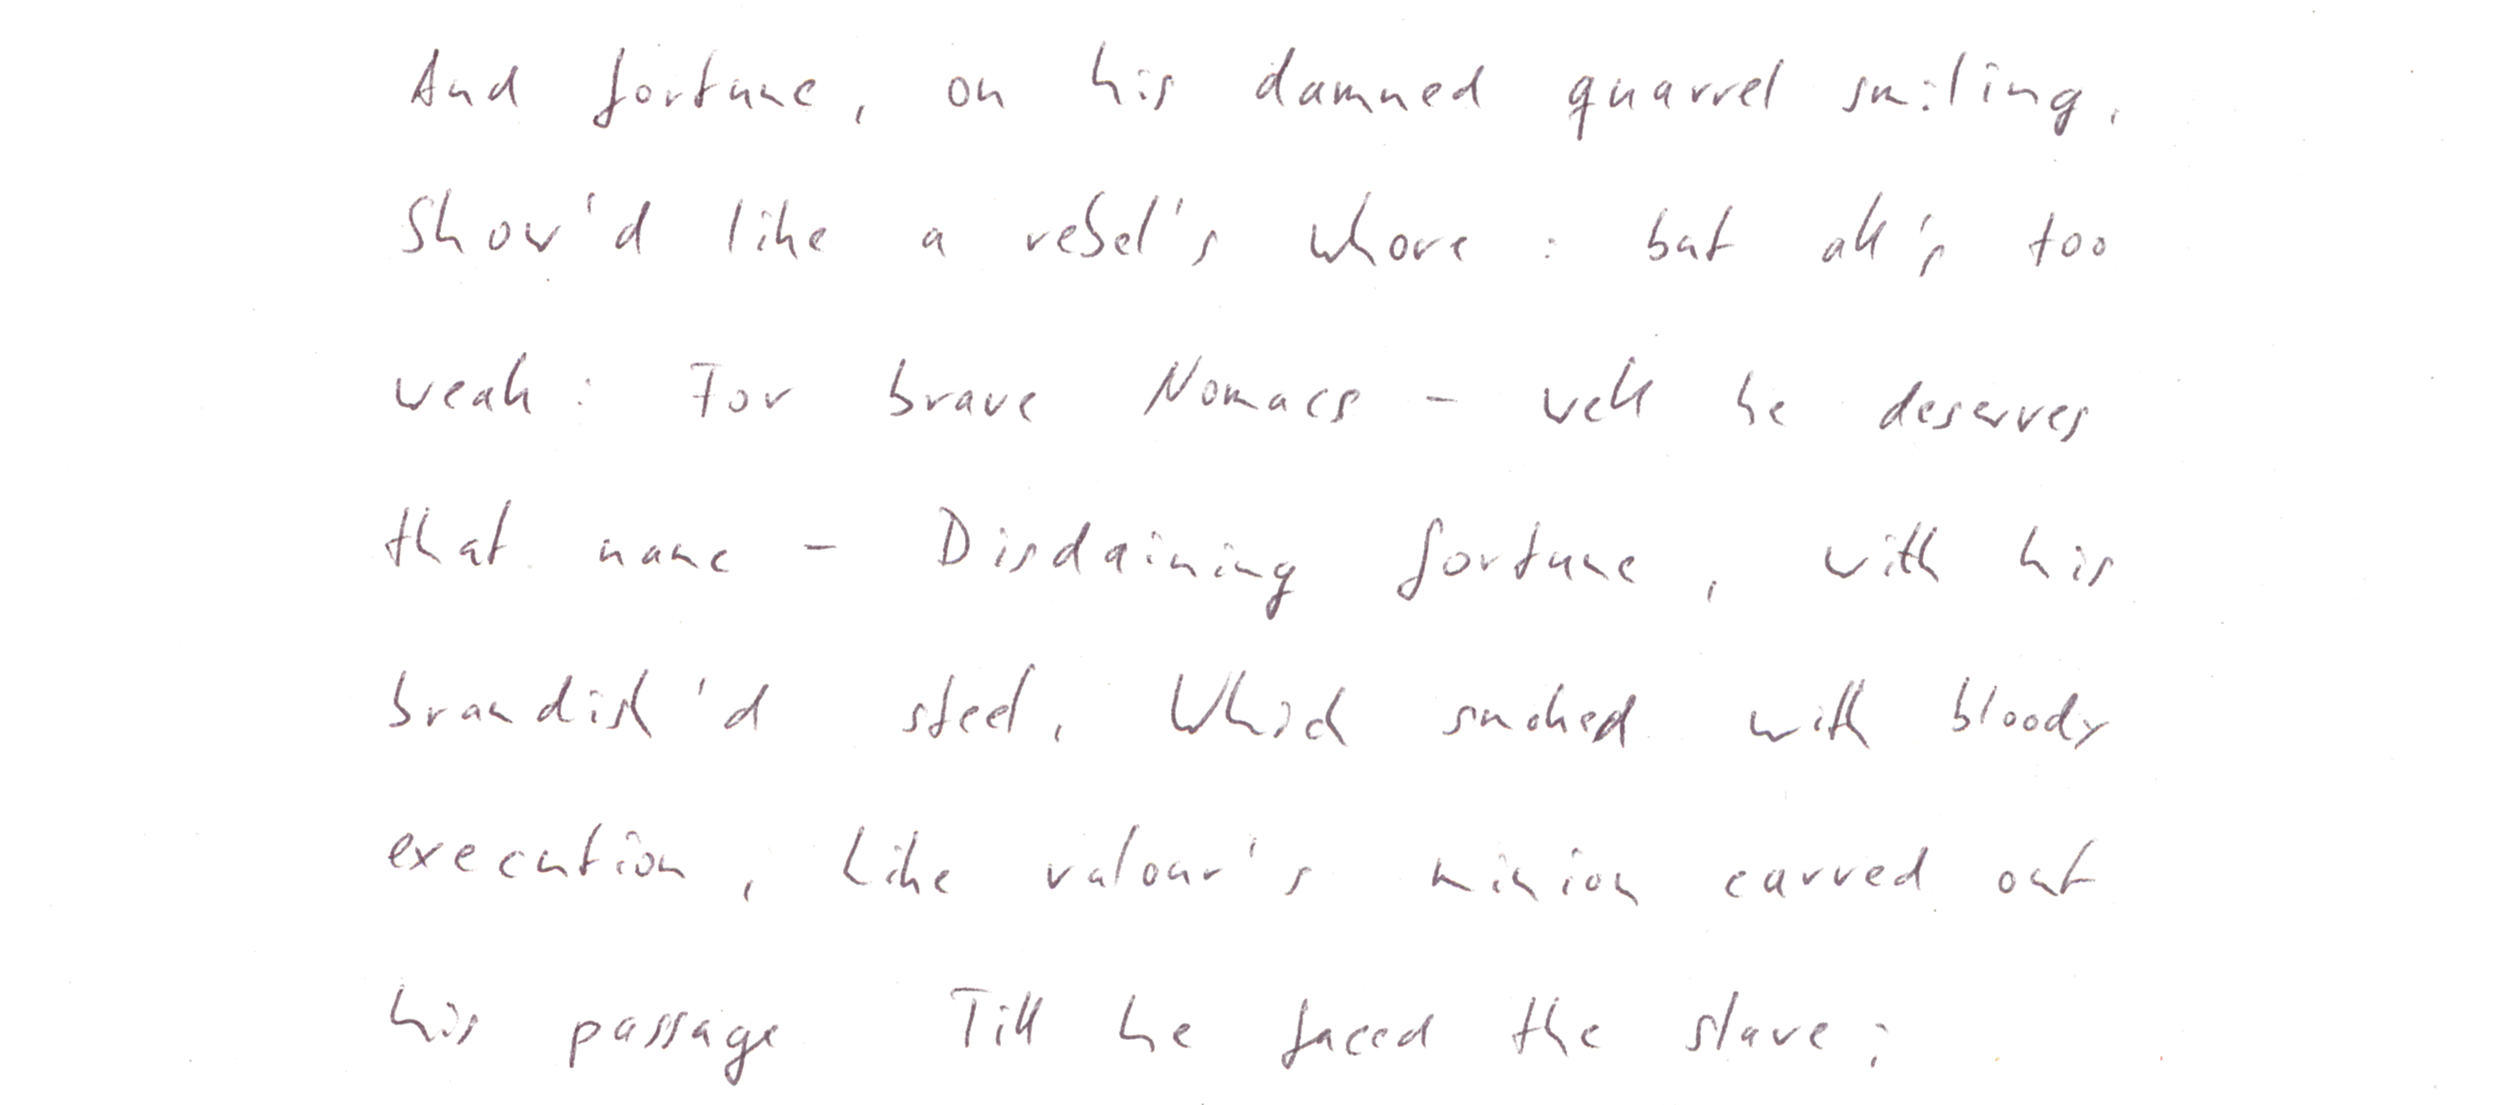 And fortune, on his damned quarrel smiling,
Show'd like a rebel's whore: but all's too
weak: For brave Nomacs - well he deserves
that name - Disdaining fortune, with his
brandish'd steel, Which smoked with bloody
execution, Like valour's minion carved out
his passage Till he faced the slave;